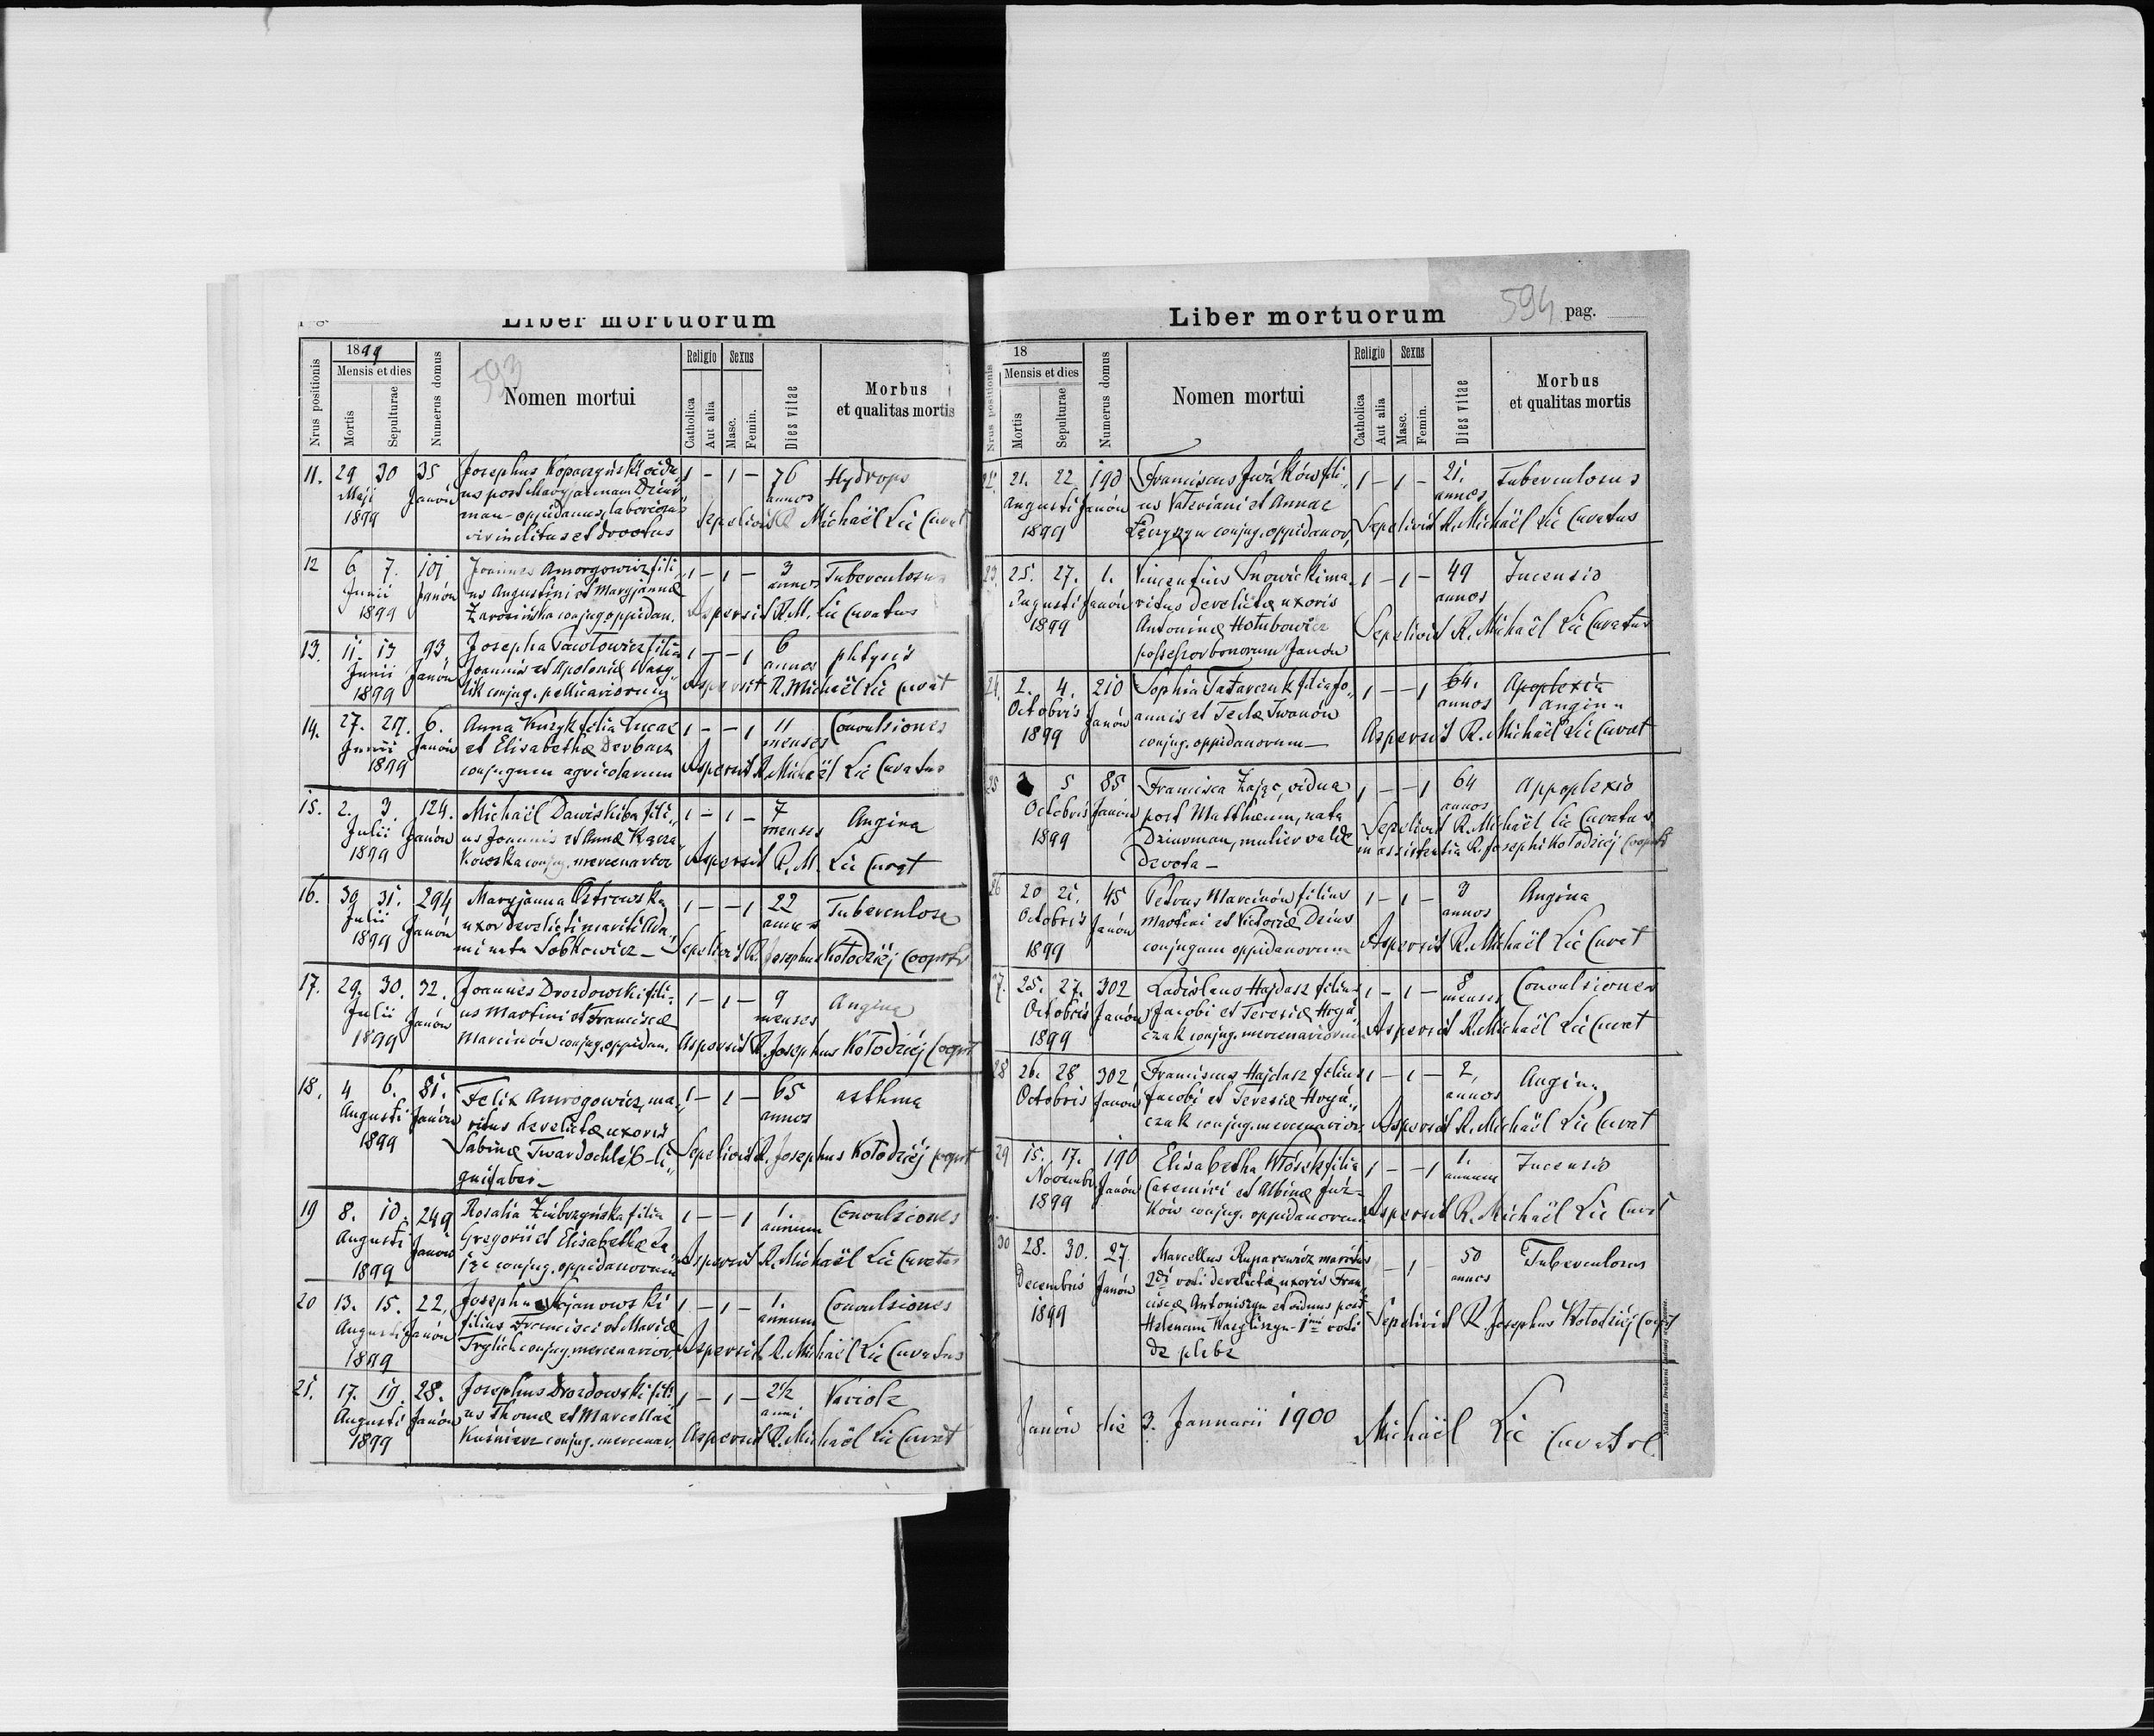 Liber mortuorum
1899
593
Nrus positionis
Mensis et dies
Mortis
Sepulturae
Numerus domus
Nomen mortui
Religio
Catholica
Aut alia
Sexus
Masc.
Femin.
Dies vitae
Morbus
et qualitas mortis
11. 29 30 35 Josephus Kopaczyński vidu, 1 - 1 - 76 Hydrops
Maji Janów us post Maryjannam annos
1899 man - oppidanus, laboriosus Sepelivit R Michaël Lic Curat
vir inclitus et devotus
12 6 7. 101 Joannes Amrogowicz fili, 1 - 1 - 3 Tuberculosus
Junii Janów us Augustini et Maryjannæ annos
1899 conjug oppidan. Aspersit R. M. Lic Curatus
13. 11. 13 93. Josepha Pawłowicz filia 1 - - 1 6 phtysis
Junii Janów Joannis et Apoloniæ Wasy annos
1899 lik conjug. pellicariorum Aspersit R. Michaël Lic Curat
14. 27. 29. 6. Anna Kuzyk filia Lucae 1 - - 1 11 Convulsiones
Junii Janów et Elisabethæ Derbacz menses
1899 conjugum agricolarum Aspersit R. Michaël Lic Curatus
15. 2. 3. 124. Michaël Dawiskiba fili, 1 - 1 - 7 Angina
Julii Janów us Joannis et Annæ Kacza menses
1899 kowska conjug. mercenarior Aspersit R. M. Lic Curat
16. 30 31. 294 Maryjanna Ostrowska 1 - - 1 22 Tuberculose
Julii Janów uxor derelicti mariti Ada, annos
1899 mi nata Sobkowicz - Sepelivit R. Josephus Kołodziéj Cooprtr
17. 29. 30. 32. Joannes Drozdowski fili, 1 - 1 - 9 Angina
Julii Janów us Martini et Franciscæ menses
1899 Marcinów conjug. oppidan. Aspersit R. Josephus Kołodziéj Cooprt
18. 4 6. 81. Felix Amrogowicz, ma, 1 - 1 - 65 asthma
Augusti Janów ritus derelictæ uxoris annos
1899 Sabinæ Sepelivit R. Josephus Kołodziéj Cooprt
gnifaber -
19 8. 10. 249 Rosalia filia 1 - - 1 1. Convulsiones
Augusti Janów Gregorii et Elisabetha Za annum
1899 jąc conjug. oppidanorum Aspersit R. Michaël Lic Curatus
20 13. 15. 22, Josephus Kijanowski 1 - 1 - 1. Convulsiones
Augusti Janów filius Francisci et Mariæ annum
1899 conjug. mercenarior. Aspersit R. Michaël Lic Curatus
21. 17. 19. 28. Josephus Drozdowski fili, 1 - 1 - 2½ Variola
Augusti Janów us Thomæ et Marcellae anni
1899 Kuśnierz conjug. mercenar. Aspersit R. Michaël Lic Curat
Liber mortuorum
594 pag.
18
Nrus positionis
Mensis et dies
Mortis
Sepulturae
Numerus domus
Nomen mortui
Religio
Catholica
Aut alia
Sexus
Masc.
Femin.
Dies vitae
Morbus
et qualitas mortis
22. 21. 22 190 Franciscus Juźków fili 1 - 1 - 21. Tuberculosus
Augusti Janów us Valeriani et Annae annos
1899 conjug. oppidanor, Sepelivit R. Michaël Lic Curatus
23. 25. 27. 1. Vincentius Snowicki ma, 1 - 1 - 49 Incensio
Augusti Janów ritus derelictæ uxoris annos
1899 Antoninæ Hołubowicz Sepelivit R. Michaël Lic Curatus
possessor bonorum Janów
24. 2. 4. 210 Sophia Tatarczuk filia Jo, 1 - - 1 64. Apoplexia
Octobris Janów annis et Teclæ Iwanów annos Angina
1899 conjug. oppidanorum - Aspersit R. Michaël Lic Curat
25 5 85 Francisca Zając, vidua 1 - - 1 64 appoplexio
Octobris Janów post Matthæum, nata annos
1899 Dziurman, mulier valde Sepelivit R. Michaël Lic Curatus
devota - in assistentia R. Josephi Kołodziéj Cooprtr
26 20 21. 45 Petrus Marcinów filius 1 - 1 - 3 Angina
Octobris Janów Martini et Victoriæ Dzius annos
1899 conjugum oppidanorum Aspersit R. Michaël Lic Curat
27. 25. 27. 302 Ladislaus Hajdasz filius 1 - 1 - 8 Convulsiones
Octobris Janów Jacobi et Teresiæ Hryń, menses
1899 czak conjug. mercenariorum Aspersit R. Michaël Lic Curat
28 26. 28 302, Franciscus Hajdasz filius 1 - 1 - 2, Angina
Octobris Janów Jacobi et Teresiæ Hryń,, annos
czak conjug. mercenarior. Aspersit R. Michaël Lic Curat
29 15. 17. 190 Elisabetha Włosek filia 1 - - 1 1. Incensio
Novembr. Janów Casimiri et Albinæ Juź- annum
1899 ków conjug. oppidanorum Aspersit R. Michaël Lic Curat
30 28. 30. 27. Marcellus Ruparewicz maritus - 1 - 50 Tuberculosus
Decembris Janów 2di voti derelictæ uxoris Fran, annos
1899 ciscæ Antoniszyn et viduus post Sepelivit R Josephus Kołodziéj Cooprt
Helenam 1mi voti
de plebe
Janów die 3. Januarii 1900 Michaël Lic
Curat rl.